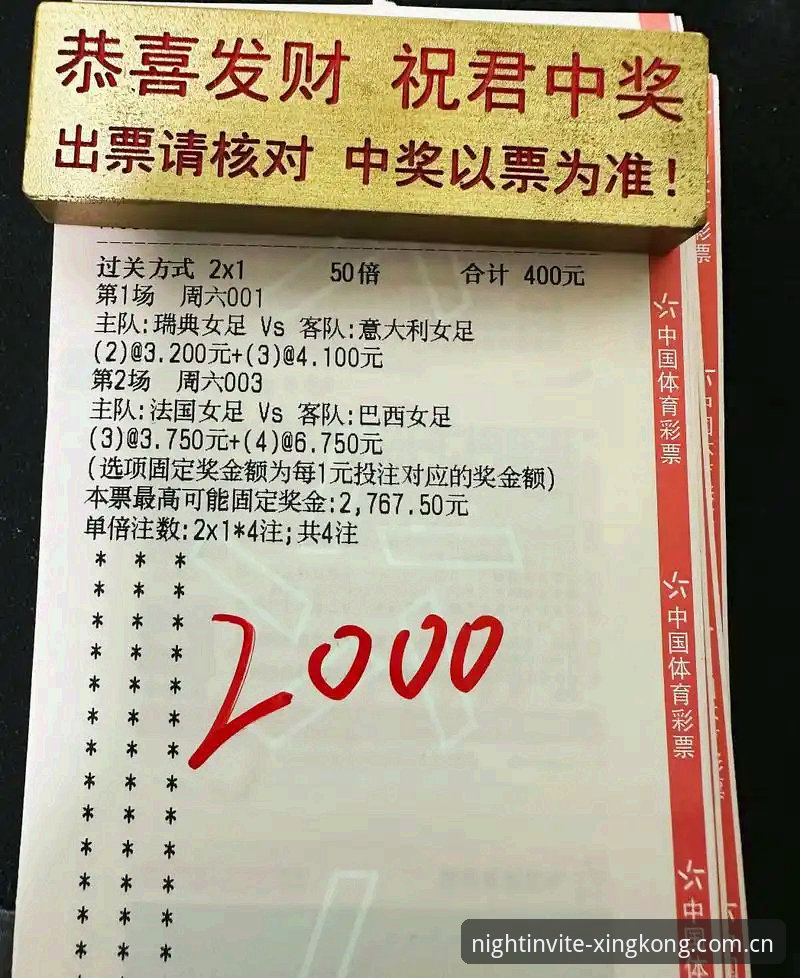 恭喜发财 祝君中奖
出票请核对 中奖以票为准!
过关方式 2x1 50倍 合计 400元
第1场 周六001
主队:瑞典女足 Vs 客队:意大利女足
(2)@3.200元+(3)@4.100元
第2场 周六003
主队:法国女足 Vs 客队:巴西女足
(3)@3.750元+(4)@6.750元
(选项固定奖金额为每1元投注对应的奖金额)
本票最高可能固定奖金:2,767.50元
单倍注数:2x1*4注;共4注
* * *
* * *
* * *
* * *
* * *
* * *
* * *
* * *
* * *
* * *
* * *
* * *
* * *
2000
中国体育彩票
中国体育彩票
中国体
彩票
nightinvite-xingkong.com.cn